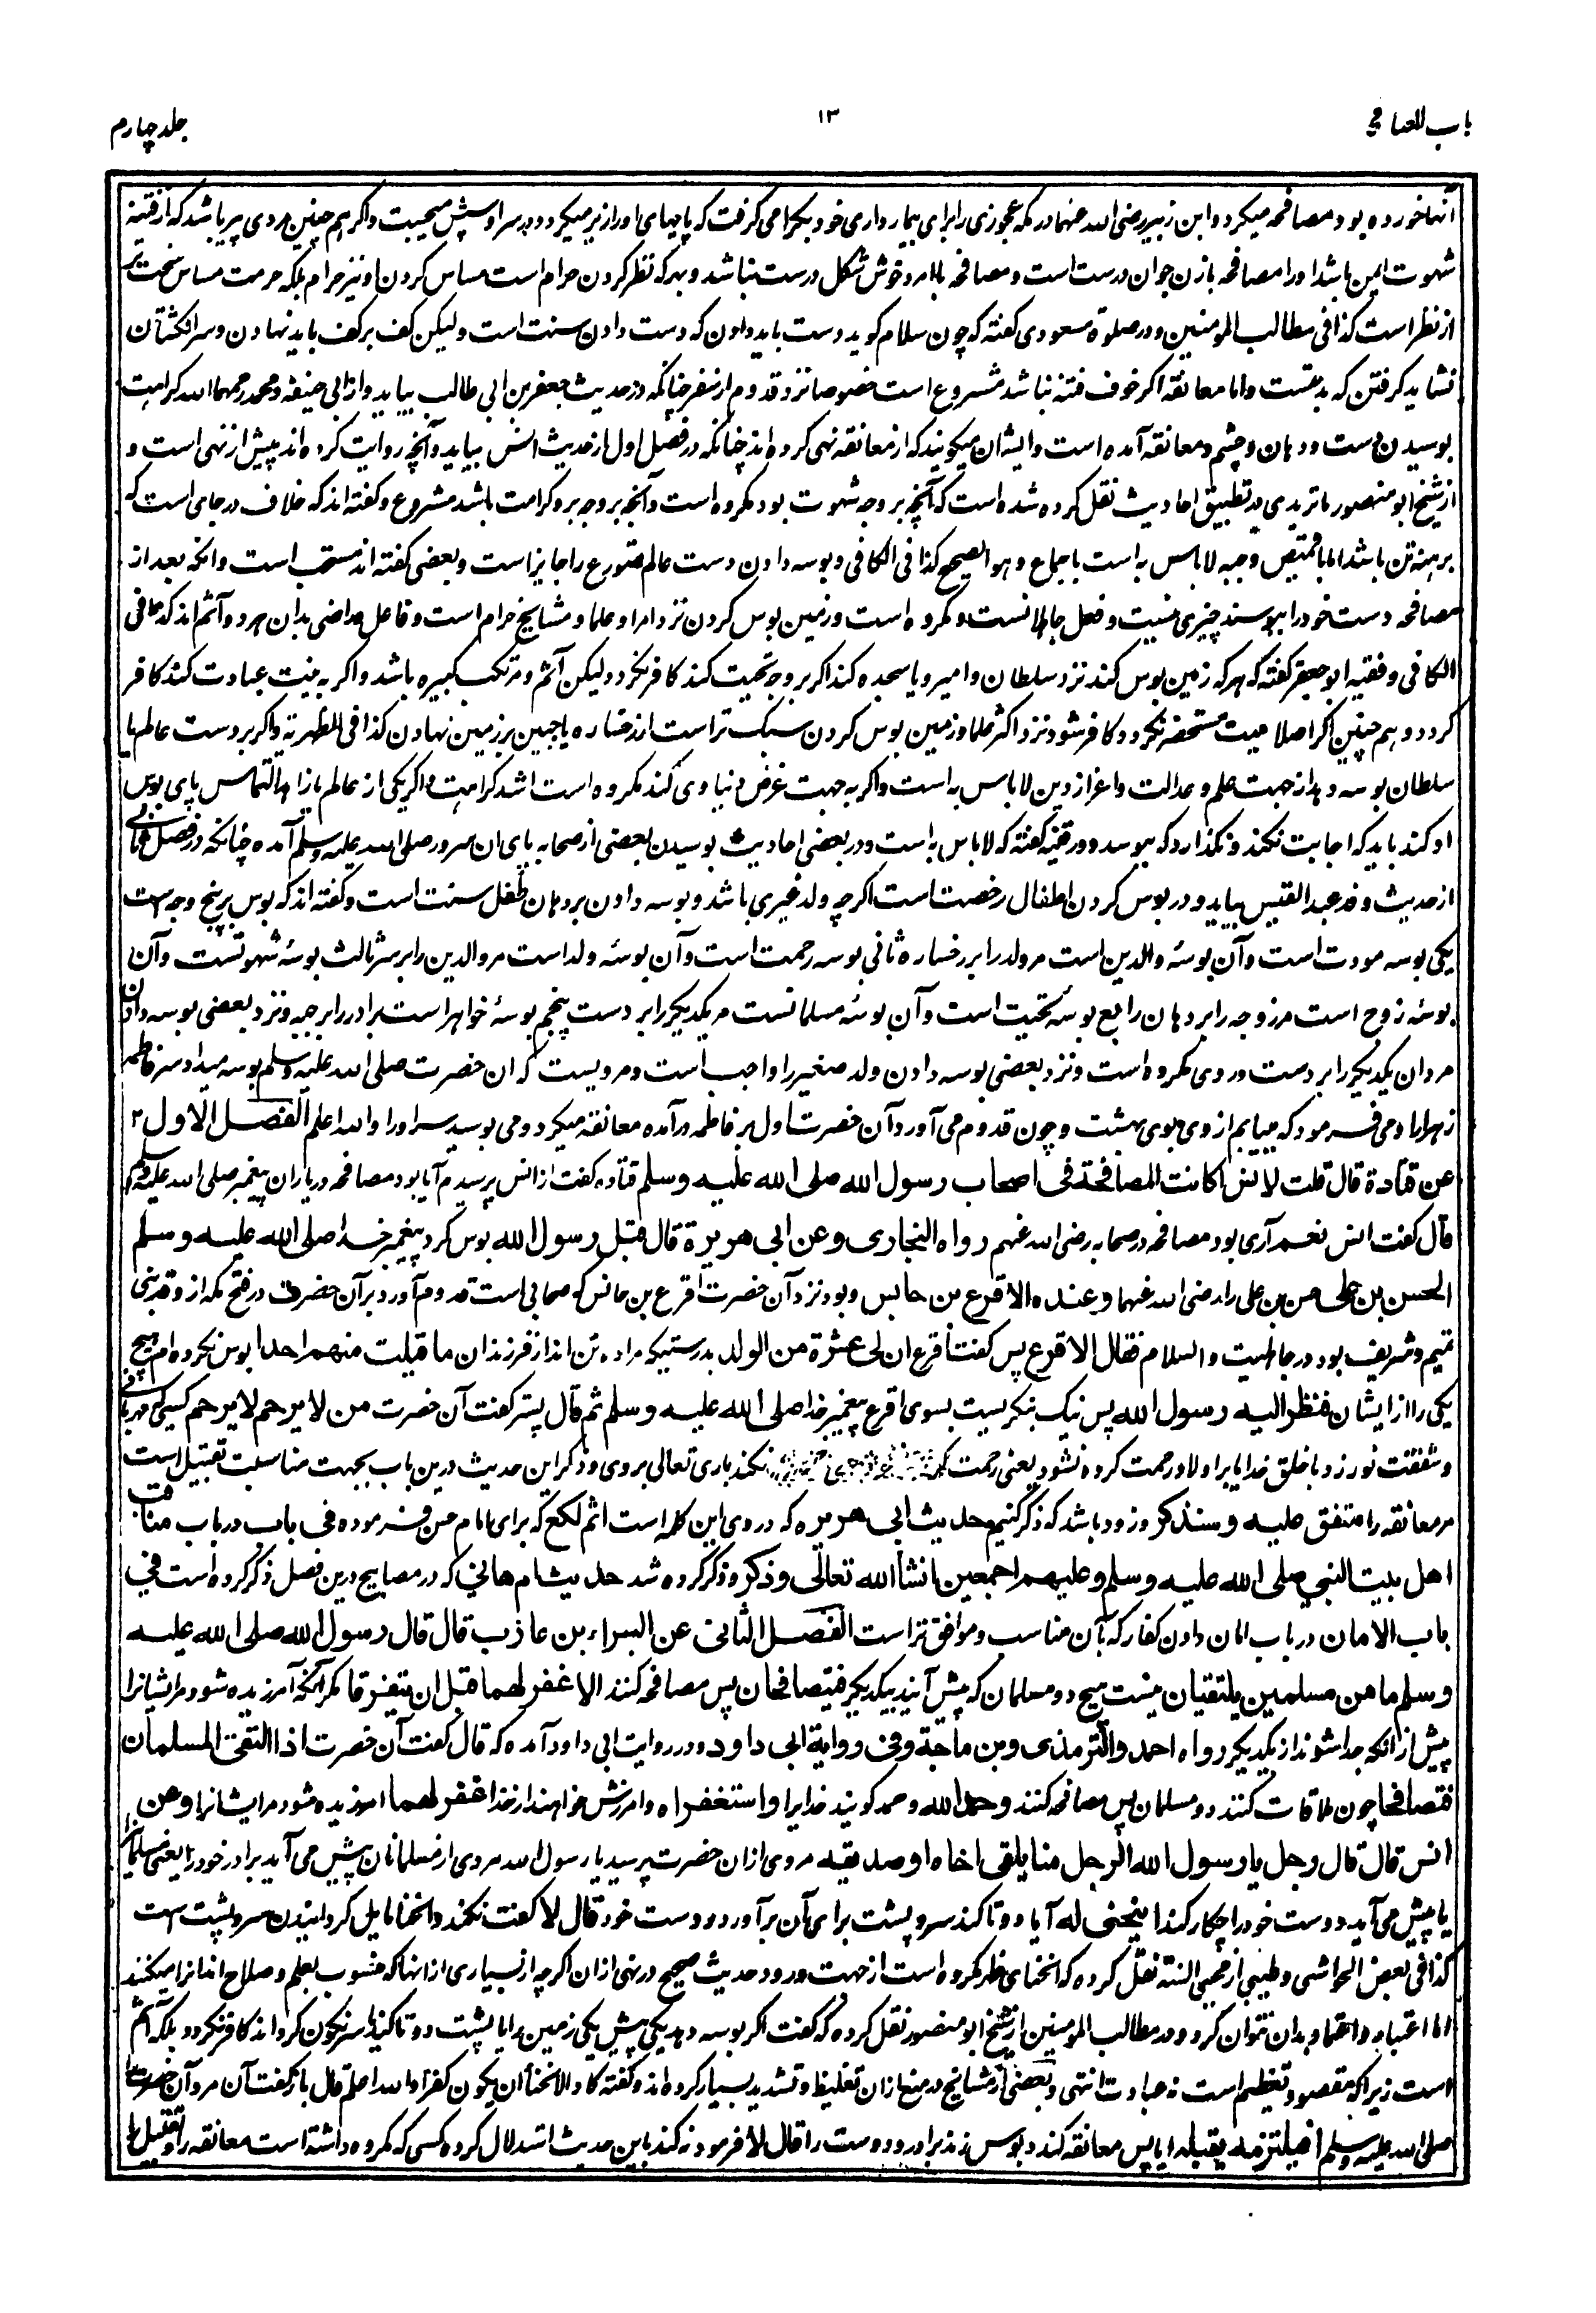 باب المصافحة
۱۳
جلد چهارم
آنها خورده بود مصافحه میکرد و ابن زبیر رضی الله عنهما در مکه عجوزی را برای بیمار داری خود بکرا می گرفت که پایهای او را زیر میکرد و در سر او سپش میجست و اگر هم چنین مردی پیر باشد که از فتنه
شهوت ایمن باشد او را مصافحه با زن جوان درست است و مصافحه با امرد خوش شکل درست نباشد و بهر که نظر کردن حرام است مساس کردن او نیز حرام بلکه حرمت مساس سخت تر
از نظر است کذا فی مطالب المومنین و در صلوة مسعودی گفته که چون سلام گوید دست باید دادن که دست دادن سنت است ولیکن کف بر کف باید نهادن و سر انگشتان
نشاید گرفتن که بدعتست و اما معانقه اگر خوف فتنه نباشد مشروع است خصوصا نزد قدوم از سفر چنانکه در حدیث جعفر بن ابی طالب بیاید و از ابی حنیفه و محمد رحمهما الله کراهت
بوسیدن دست و دهان و چشم و معانقه آمده است و ایشان میگویند که از معانقه نهی کرده اند چنانکه در فصل اول از حدیث انس بیاید و آنچه روایت کرده اند پیش از نهی است و
از شیخ ابو منصور ماتریدی در تطبیق احادیث نقل کرده شده است که آنچه بر وجه شهوت بود مکروه است و آنچه بر وجه بر و کرامت باشد مشروع و گفته اند که خلاف در جای است که
برهنه تن باشد اما با قمیص و جبه لا باس به است باجماع و هو الصحیح کذا فی الکافی و بوسه دادن دست عالم متورع را جایز است و بعضی گفته اند مستحب است و آنکه بعد از
مصافحه دست خود را ببوسند چیزی نیست و فعل جاهلانست و مکروه است و زمین بوس کردن نزد امرا و علما و مشایخ حرام است و فاعل و راضی بدان هر دو آثم اند کذا فی
الکافی و فقیه ابو جعفر گفته که هر که زمین بوس کند نزد سلطان و امیر و یا سجده کند اگر بر وجه تحیت کند کافر نگردد لیکن آثم و مرتکب کبیره باشد و اگر به نیت عبادت کند کافر
گردد و هم چنین اگر اصلا نیت مستحضر نگردد کافر شود نزد اکثر علما و زمین بوس کردن سبک تر است از رخساره یا جبین بر زمین نهادن کذا فی الظهیریه و اگر بر دست عالم یا
سلطان بوسه دهد از جهت علم و عدالت و اعزاز دین لا باس به است و اگر به جهت غرض دنیاوی کند مکروه است اشد کراهت و اگر یکی از عالم یا زاهد التماس پای بوس
او کند باید که اجابت نکند و نگذارد که ببوسد و در قنیه گفته که لا باس به است و در بعضی احادیث بوسیدن بعضی از صحابه پای آن سرور صلی الله علیه وسلم آمده چنانکه در فصل ثانی
از حدیث وفد عبد القیس بیاید و در بوس کردن اطفال رخصت است اگرچه ولد غیری باشد و بوسه دادن بر دهان طفل سنت است و گفته اند که بوس بر پنج وجه است
یکی بوسه مودت است و آن بوسهٔ والدین است مر ولد را بر رخساره ثانی بوسه رحمت است و آن بوسهٔ ولد است مر والدین را بر سر ثالث بوسهٔ شهوتست و آن
بوسهٔ زوج است مر زوجه را بر دهان رابع بوسهٔ تحیت است و آن بوسهٔ مسلمانست مر یکدیگر را بر دست پنجم بوسهٔ خواهر است برادر را بر جبهه و نزد بعضی بوسه دادن
مردان یکدیگر را بر دست و روی مکروه است و نزد بعضی بوسه دادن ولد صغیر را واجب است و مرویست که آن حضرت صلی الله علیه وسلم بوسه میداد سر فاطمه
زهرا را و می فرمود که مییابم از وی بوی بهشت و چون قدوم می آورد آن حضرت اول بر فاطمه در آمده معانقه میکرد و می بوسید سر او را والله اعلم الفصل الاول ۲
عن قتادة قال قلت لانس أکانت المصافحة فی اصحاب رسول الله صلی الله علیه وسلم قتاده گفت از انس پرسیدم آیا بود مصافحه در یاران پیغمبر صلی الله علیه وسلم
قال گفت انس نعم آری بود مصافحه در صحابه رضی الله عنهم رواه البخاری وعن ابی هریرة قال قبل رسول الله بوس کرد پیغمبر خدا صلی الله علیه وسلم
الحسن بن علی حسن بن علی را رضی الله عنهما وعنده الاقرع بن حابس و بود نزد آن حضرت اقرع بن حابس که صحابی است قدوم آورد بر آن حضرت در فتح مکه از وفد بنی
تمیم و شریف بود در جاهلیت و اسلام فقال الاقرع پس گفت اقرع ان لی عشرة من الولد بدرستیکه مراده تن اند از فرزندان ما قبلت منهم احدا بوس نکرده ام هیچ
یکی را از ایشان فنظر الیه رسول الله پس نیک بنگریست بسوی اقرع پیغمبر خدا صلی الله علیه وسلم ثم قال پستر گفت آن حضرت من لا یرحم لا یرحم کسیکه مهربانی
و شفقت نورزد با خلق خدا یا بر اولاد رحمت کرده نشود یعنی رحمت نکند باری تعالی بروی و ذکر این حدیث درین باب بجهت مناسبت تقبیل است
مر معانقه را متفق علیه وسنذکر و زود باشد که ذکر کنیم حدیث ابی هریرة که در وی این کلمه است اثم لکع که برای امام حسن فرموده فی باب در باب مناقب
اهل بیت النبی صلی الله علیه وسلم وعلیهم اجمعین انشاالله تعالی وذکر و ذکر کرده شد حدیث ام هانی که در مصابیح درین فصل ذکر کرده است فی
باب الامان در باب امان دادن کفار که بآن مناسب و موافق تر است الفصل الثانی عن البراء بن عازب قال قال رسول الله صلی الله علیه
وسلم ما من مسلمین یلتقیان نیست هیچ دو مسلمان که پیش آیند بیکدیگر فیتصافحان پس مصافحه کنند الا غفر لهما قبل ان یتفرقا مگر آنکه آمرزیده شود مر ایشانرا
پیش از آنکه جدا شوند از یکدیگر رواه احمد والترمذی وبن ماجة وفی روایة ابی داود و در روایت ابی داود آمده که قال گفت آن حضرت اذا التقی المسلمان
فتصافحا چون ملاقات کنند دو مسلمان پس مصافحه کنند وحمدا الله وحمد گویند خدایرا واستغفراه و امرزش خواهند از خدا غفر لهما امرزیده شود مر ایشانرا وعن
انس قال قال رجل یا رسول الله الرجل منا یلقی اخاه او صدیقه مردی از ان حضرت پرسید یا رسول الله مردی از مسلمانان پیش می آید برادر خود را یعنی مسلمانرا
یا پیش می آید دوست خود را چکار کند اینحنی له آیا دو تا کند سر و پشت برای آن برادر و دوست خود قال لا گفت نکند و انحنا مایل گردانیدن سر و پشت است
کذا فی بعض الحواشی و طیبی از محیی السنه نقل کرده که انحنای ظهر مکروه است از جهت ورود حدیث صحیح در نهی از ان اگرچه از بسیاری از انها که منسوب بعلم و صلاح اند انرا میکنند
اما اعتبار و اعتماد بدان نتوان کرد و در مطالب المومنین از شیخ ابو منصور نقل کرده که گفت اگر بوسه دهد یکی پیش یکی زمین را یا پشت دو تا کند یا سر نگون گرداند کافر نگردد بلکه آثم
است زیرا که مقصود تعظیم است نه عبادت انتهی و بعضی از مشایخ در منع از ان تغلیظ و تشدید بسیار کرده اند و گفته کاد الانحناء ان یکون کفرا والله اعلم قال باز گفت آن مرد آن حضرت را
صلی الله علیه وسلم افیلتزمه یقبله ایا پس معانقه کند و بوس زند برادر و دوست را قال لا فرمود نه کند باین حدیث استدلال کرده کسی که مکروه داشته است معانقه را و تقبیل را